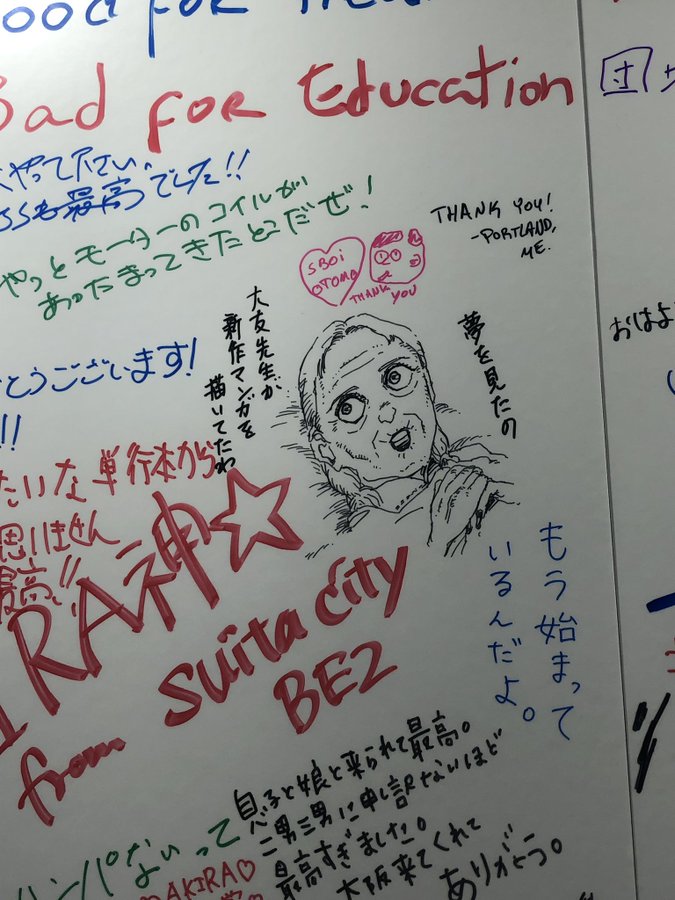 ood for
Bad for Education
やって下さい。
も最高でした!!
やっとモーターのコイルが
あったまってきたとこだぜ!
SBOi
OTOMO
THANK
YOU
THANK YOU!
-PORTLAND,
ME.
大友先生が
新作マンガを
描いてたわ
夢を見たの
とうございます!
!!
たいな単行本から
思いません
最高!!
RA神☆
from suita city
BE2
もう始まって
いるんだよ。
息子と娘と来られて最高。
二男三男に申し訳ないほど
最高すぎました。
大阪来てくれて
ありがとう。
ハンパないって
AKIRA♡
団
おはよ